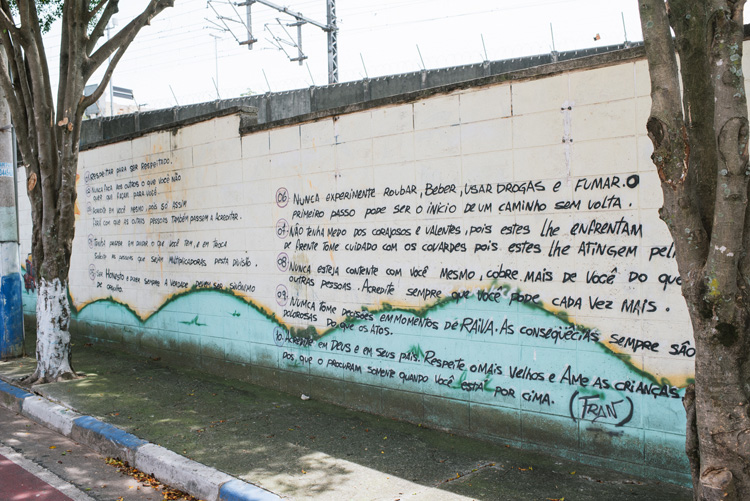 01 RESPEITAR PARA SER RESPEITADO.
02 NUNCA FAÇA AOS OUTROS O QUE VOCÊ NÃO
QUER QUE FAÇAM PARA VOCÊ.
EM VOCÊ MESMO, POIS SÓ ASSIM
FARÁ COM QUE AS OUTRAS PESSOAS TAMBÉM PASSEM A ACREDITAR.
SAIBA O QUE VOCÊ TEM, E EM TROCA
AS PESSOAS QUE SEJAM MULTIPLICADORAS DESTA DIVISÃO.
05 SER HONESTO E PARA SEMPRE A VERDADE SER SINÔNIMO
DE ORGULHO.
06 NUNCA EXPERIMENTE ROUBAR, BEBER, USAR DROGAS E FUMAR. O
PRIMEIRO PASSO PODE SER O INÍCIO DE UM CAMINHO SEM VOLTA.
07 NÃO TENHA MEDO DOS CORAJOSOS E VALENTES, POIS ESTES LHE ENFRENTAM
DE FRENTE TOME CUIDADO COM OS COVARDES POIS ESTES LHE ATINGEM
08 NUNCA ESTEJA CONTENTE COM VOCÊ MESMO, COBRE MAIS DE VOCÊ DO QUE
OUTRAS PESSOAS. ACREDITE SEMPRE QUE VOCÊ PODE CADA VEZ MAIS.
09 NUNCA TOME DECISÕES EM MOMENTOS DE RAIVA. AS CONSEQUÊCIAS SEMPRE SÃO
DOLOROSAS DO QUE OS ATOS.
10. ACREDITE EM DEUS E EM SEUS PAIS. RESPEITE O MAIS VELHOS E AME AS CRIANÇAS.
DOS, QUE O PROCURAM SOMENTE QUANDO VOCÊ ESTÁ POR CIMA. (FRAN)